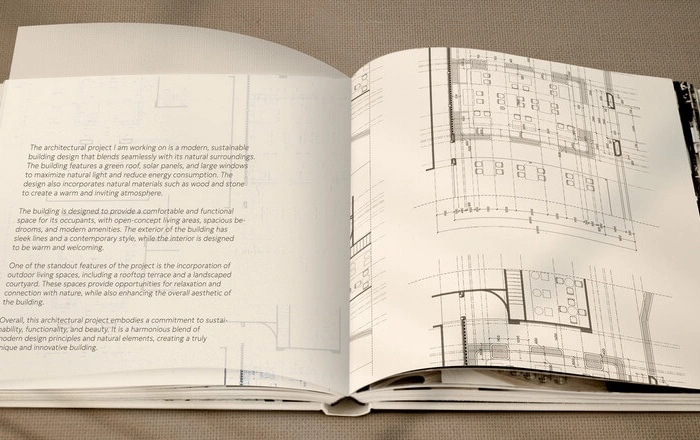 The architectural project I am working on is a modern, sustainable
building design that blends seamlessly with its natural surroundings.
The building features a green roof, solar panels, and large windows
to maximize natural light and reduce energy consumption. The
design also incorporates natural materials such as wood and stone
to create a warm and inviting atmosphere.
The building is designed to provide a comfortable and functional
space for its occupants, with open-concept living areas, spacious be-
drooms, and modern amenities. The exterior of the building has
sleek lines and a contemporary style, while the interior is designed
to be warm and welcoming.
One of the standout features of the project is the incorporation of
outdoor living spaces, including a rooftop terrace and a landscaped
courtyard. These spaces provide opportunities for relaxation and
connection with nature, while also enhancing the overall aesthetic of
the building.
Overall, this architectural project embodies a commitment to sustai-
nability, functionality, and beauty. It is a harmonious blend of
modern design principles and natural elements, creating a truly
nique and innovative building.